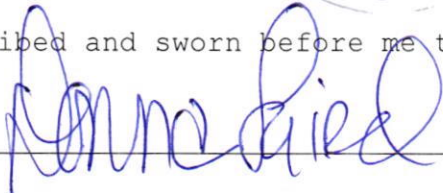 ibed and sworn before me t
Donna